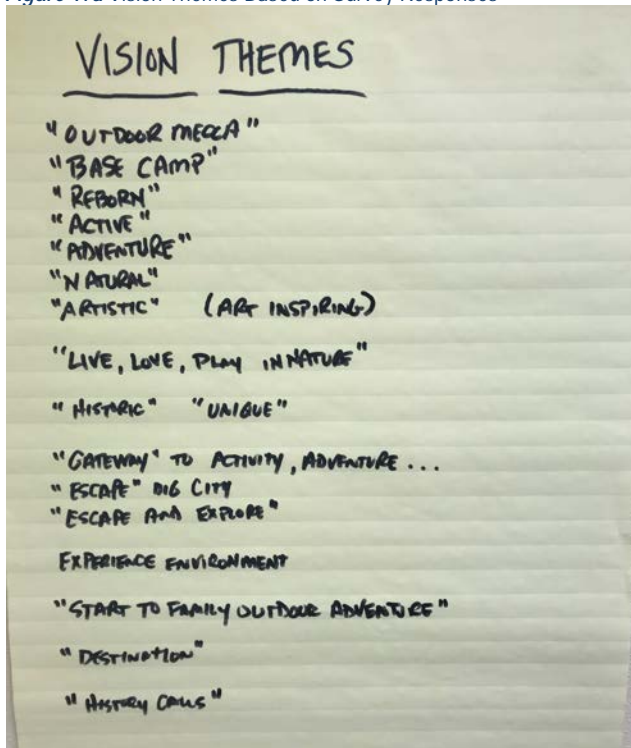 VISION THEMES
"OUTDOOR MECCA"
"BASE CAMP"
"REBORN"
"ACTIVE"
"ADVENTURE"
"NATURAL"
"ARTISTIC" (ART INSPIRING)
"LIVE, LOVE, PLAY IN NATURE"
"HISTORIC" "UNIQUE"
"GATEWAY" TO ACTIVITY, ADVENTURE ...
"ESCAPE" BIG CITY
"ESCAPE AND EXPLORE"
EXPERIENCE ENVIRONMENT
"START TO FAMILY OUTDOOR ADVENTURE"
"DESTINATION"
"HISTORY CALLS"